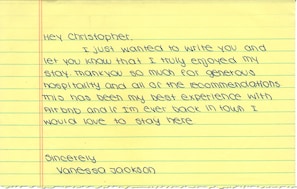 Hey Christopher,
I just wanted to write you and
let you know that I truly enjoyed my
stay. Thankyou so much for generous
hospitality and all of the recommendations
this has been my best experience with
Airbnb and if I'm ever back in town I
would love to stay here
Sincerely
Vanessa Jackson